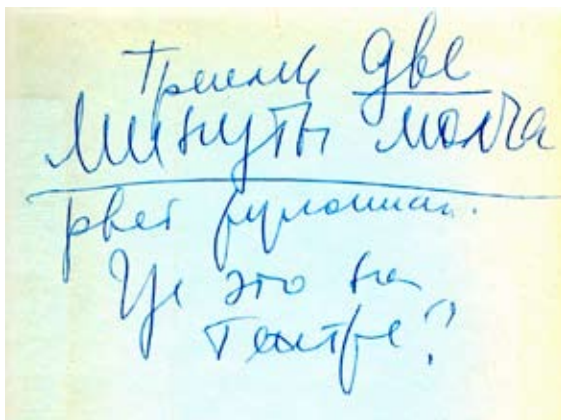 Треплев две
минуты молча
рвет рукописи.
Где это на
театре?